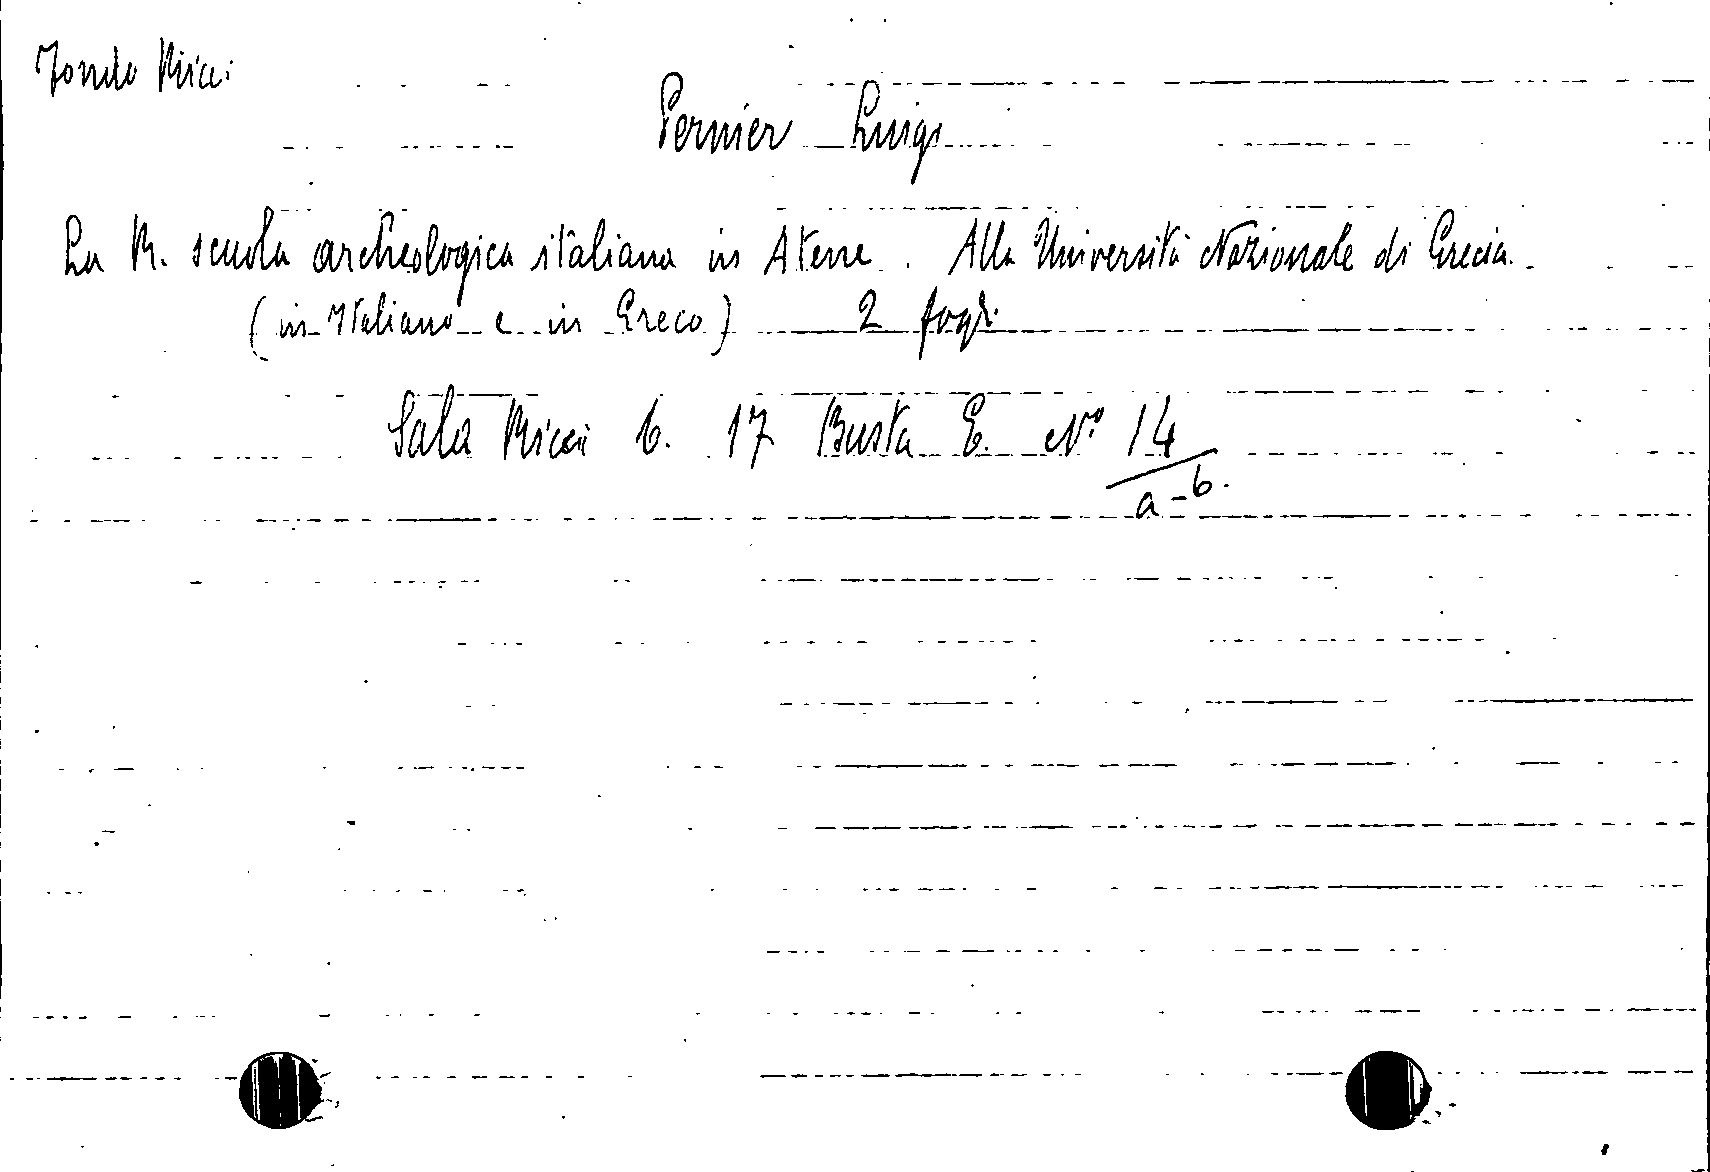 Fondo Ricci
Pernier Luigi
La R. scuola archeologica italiana in Atene. Alla Università Nazionale di Grecia.
(in Italiano e in Greco) 2 fogli
Sala Ricci 6. 17 Busta E. Nº 14
a-b.